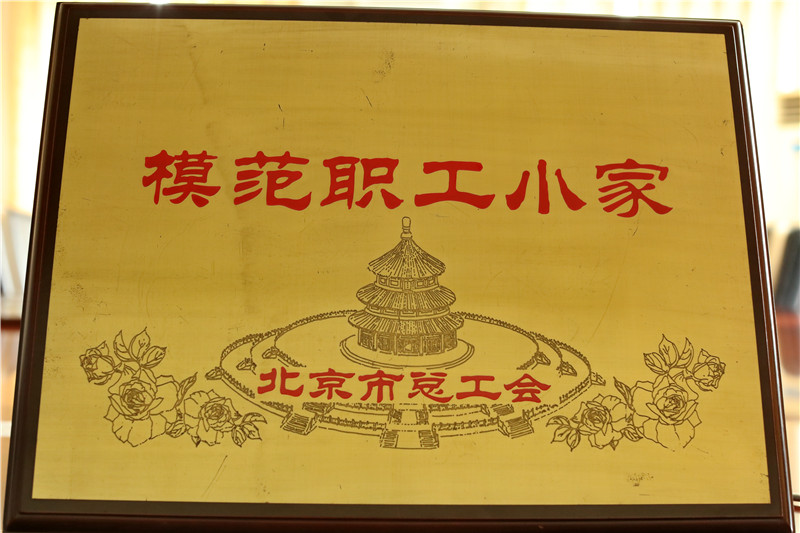 模范职工小家
北京市总工会